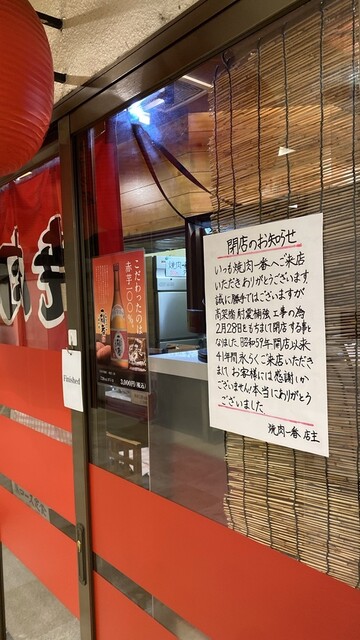 閉店のお知らせ
いつも焼肉一番へご来店
いただきありがとうございます
誠に勝手ではございますが
高架橋耐震補強工事の為
2月28日をもちまして閉店する事と
なりました。昭和59年開店以来
41年間永らくご来店いただき
ましてお客様には感謝しか
ございません本当にありがとう
ございました
焼肉一番 店主
こだわったのは
赤芋一〇〇%
3,900円(税込)
Finished